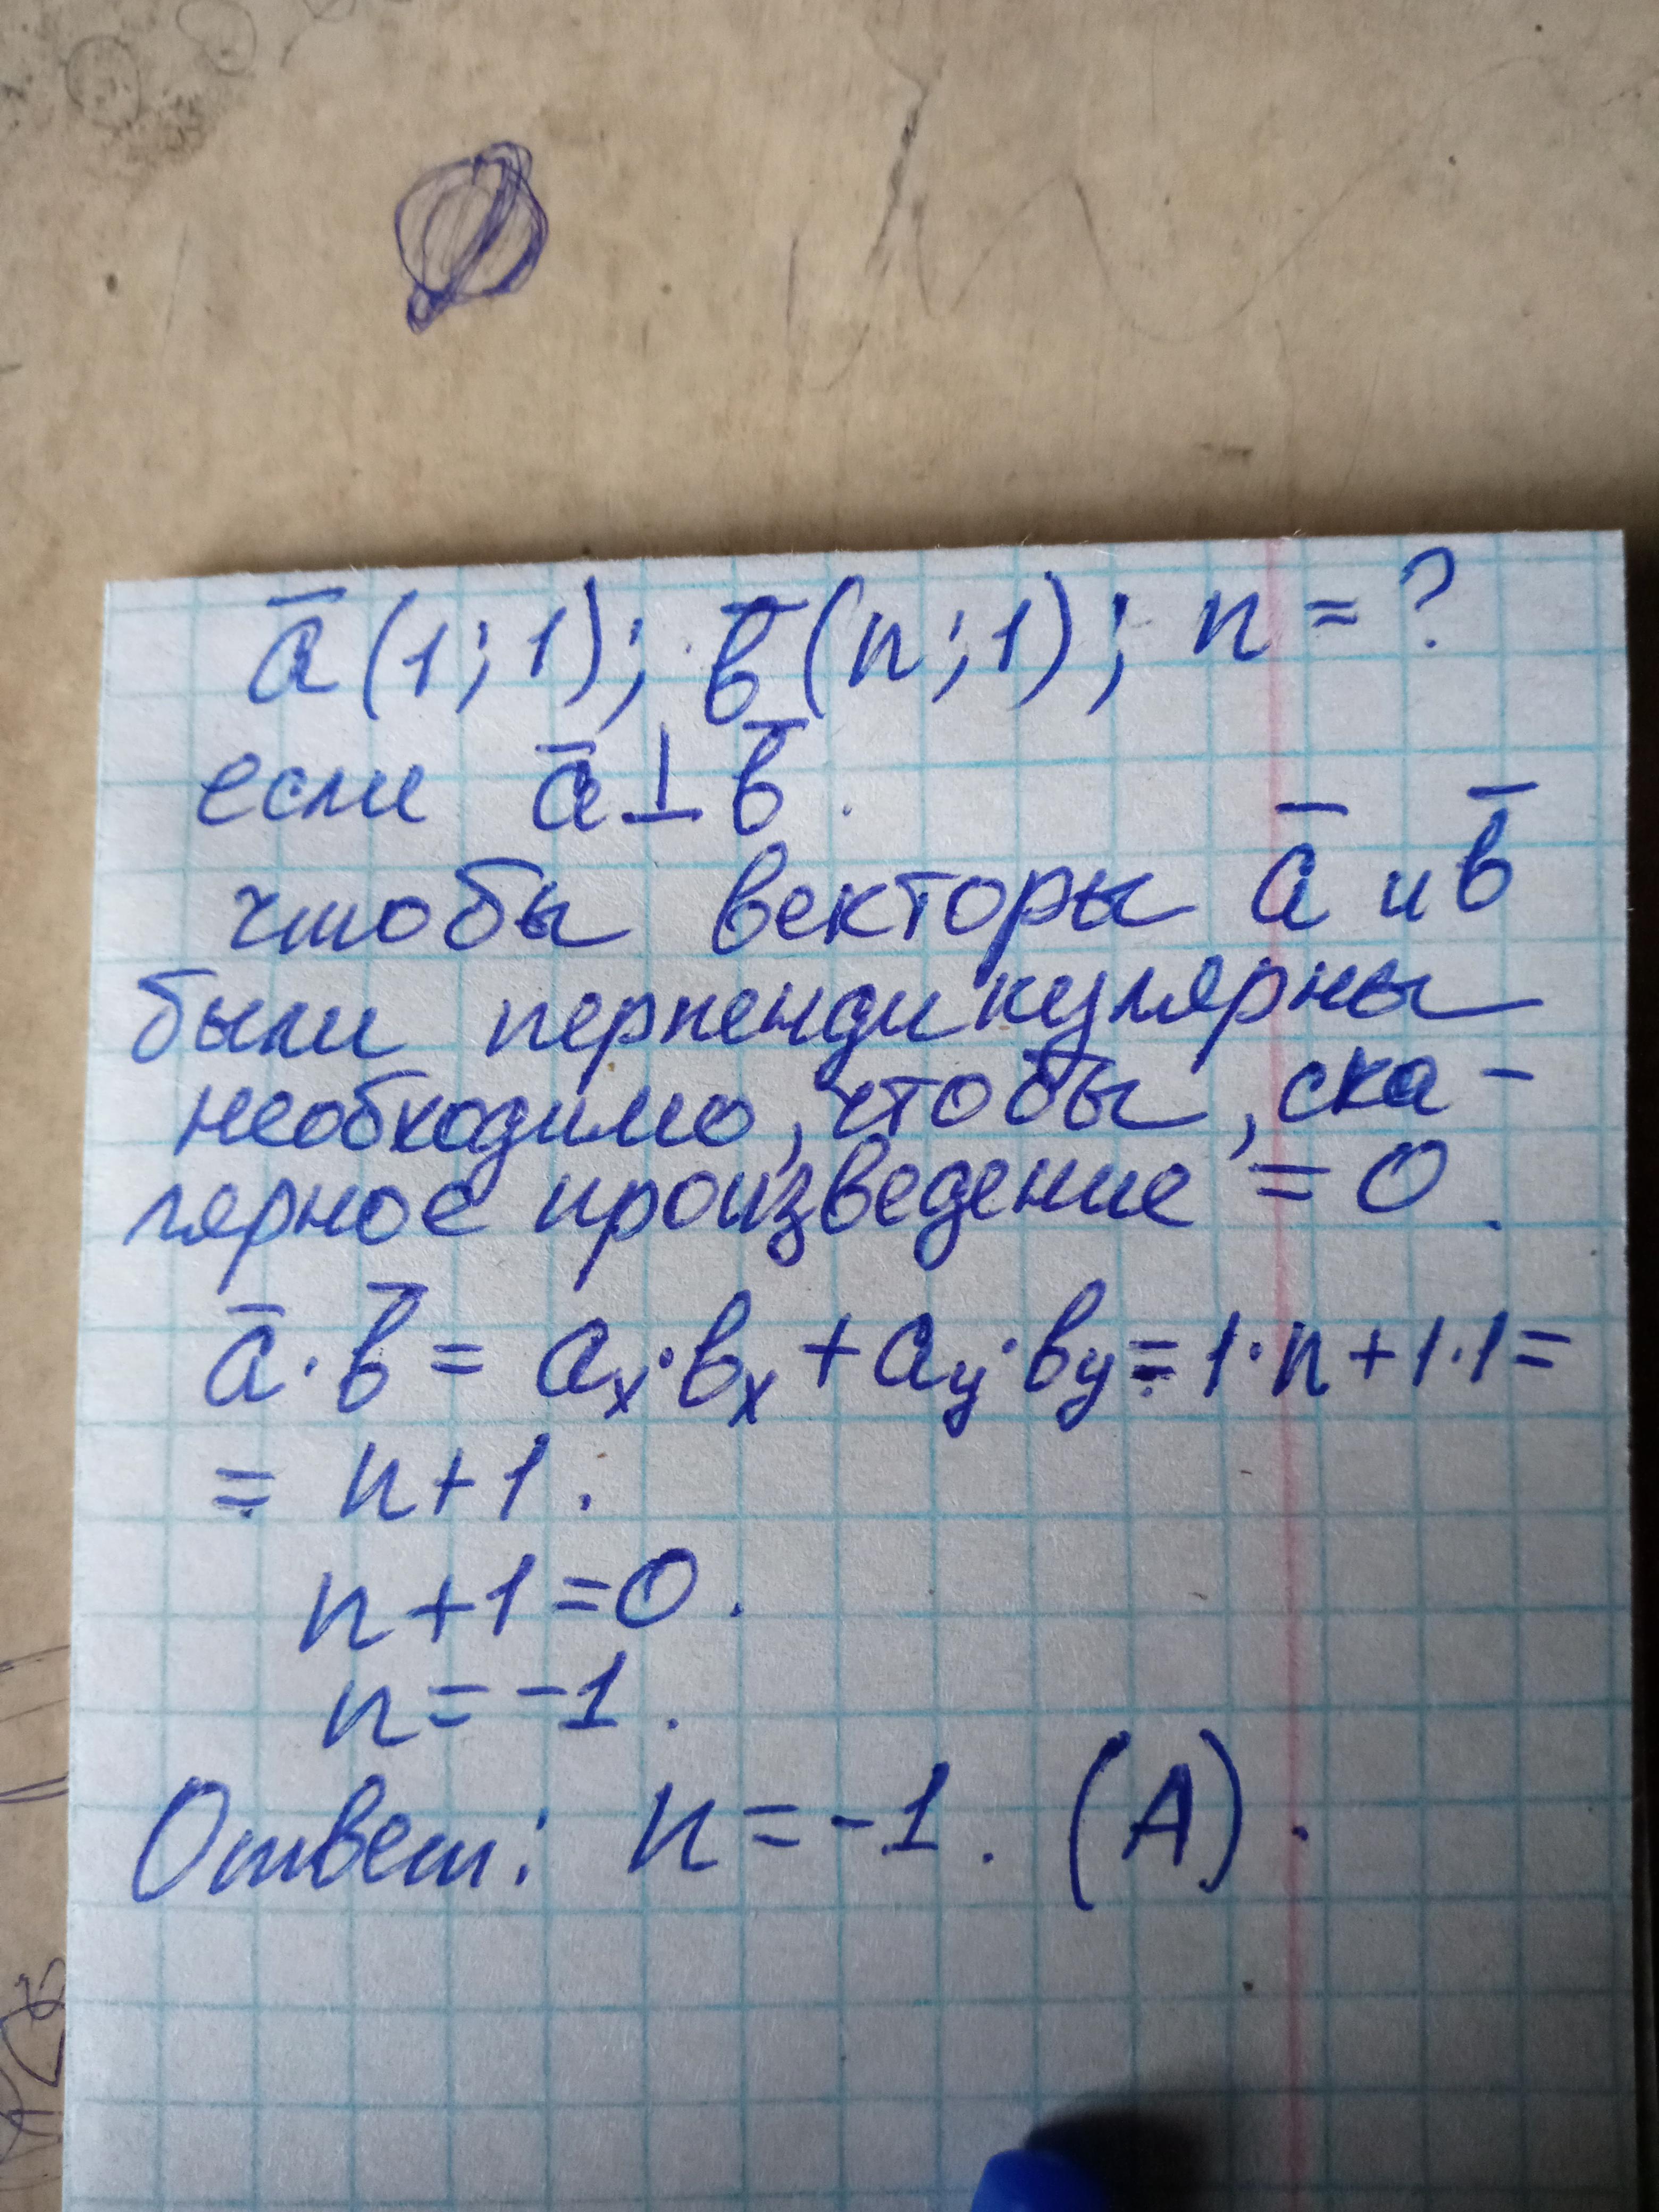 a̅ (1; 1); b̅ (n; 1); n = ?
если a̅ ⊥ b̅.
чтобы векторы a̅ и b̅
были перпендикулярны
необходимо, чтобы, ска-
лярное произведение = 0.
a̅ · b̅ = aₓ · bₓ + a_y · b_y = 1 · n + 1 · 1 =
= n + 1.
n + 1 = 0.
n = -1.
Ответ: n = -1. (А).